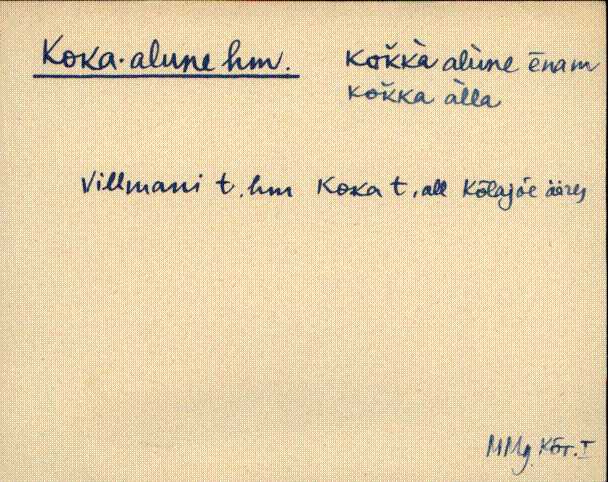 Koka-alune hm. kǒkkà alùne ēnam
kǒkka àlla
Villmani t. hm Koka t. all Kõlajõe ääres
MMg. Kõr. I